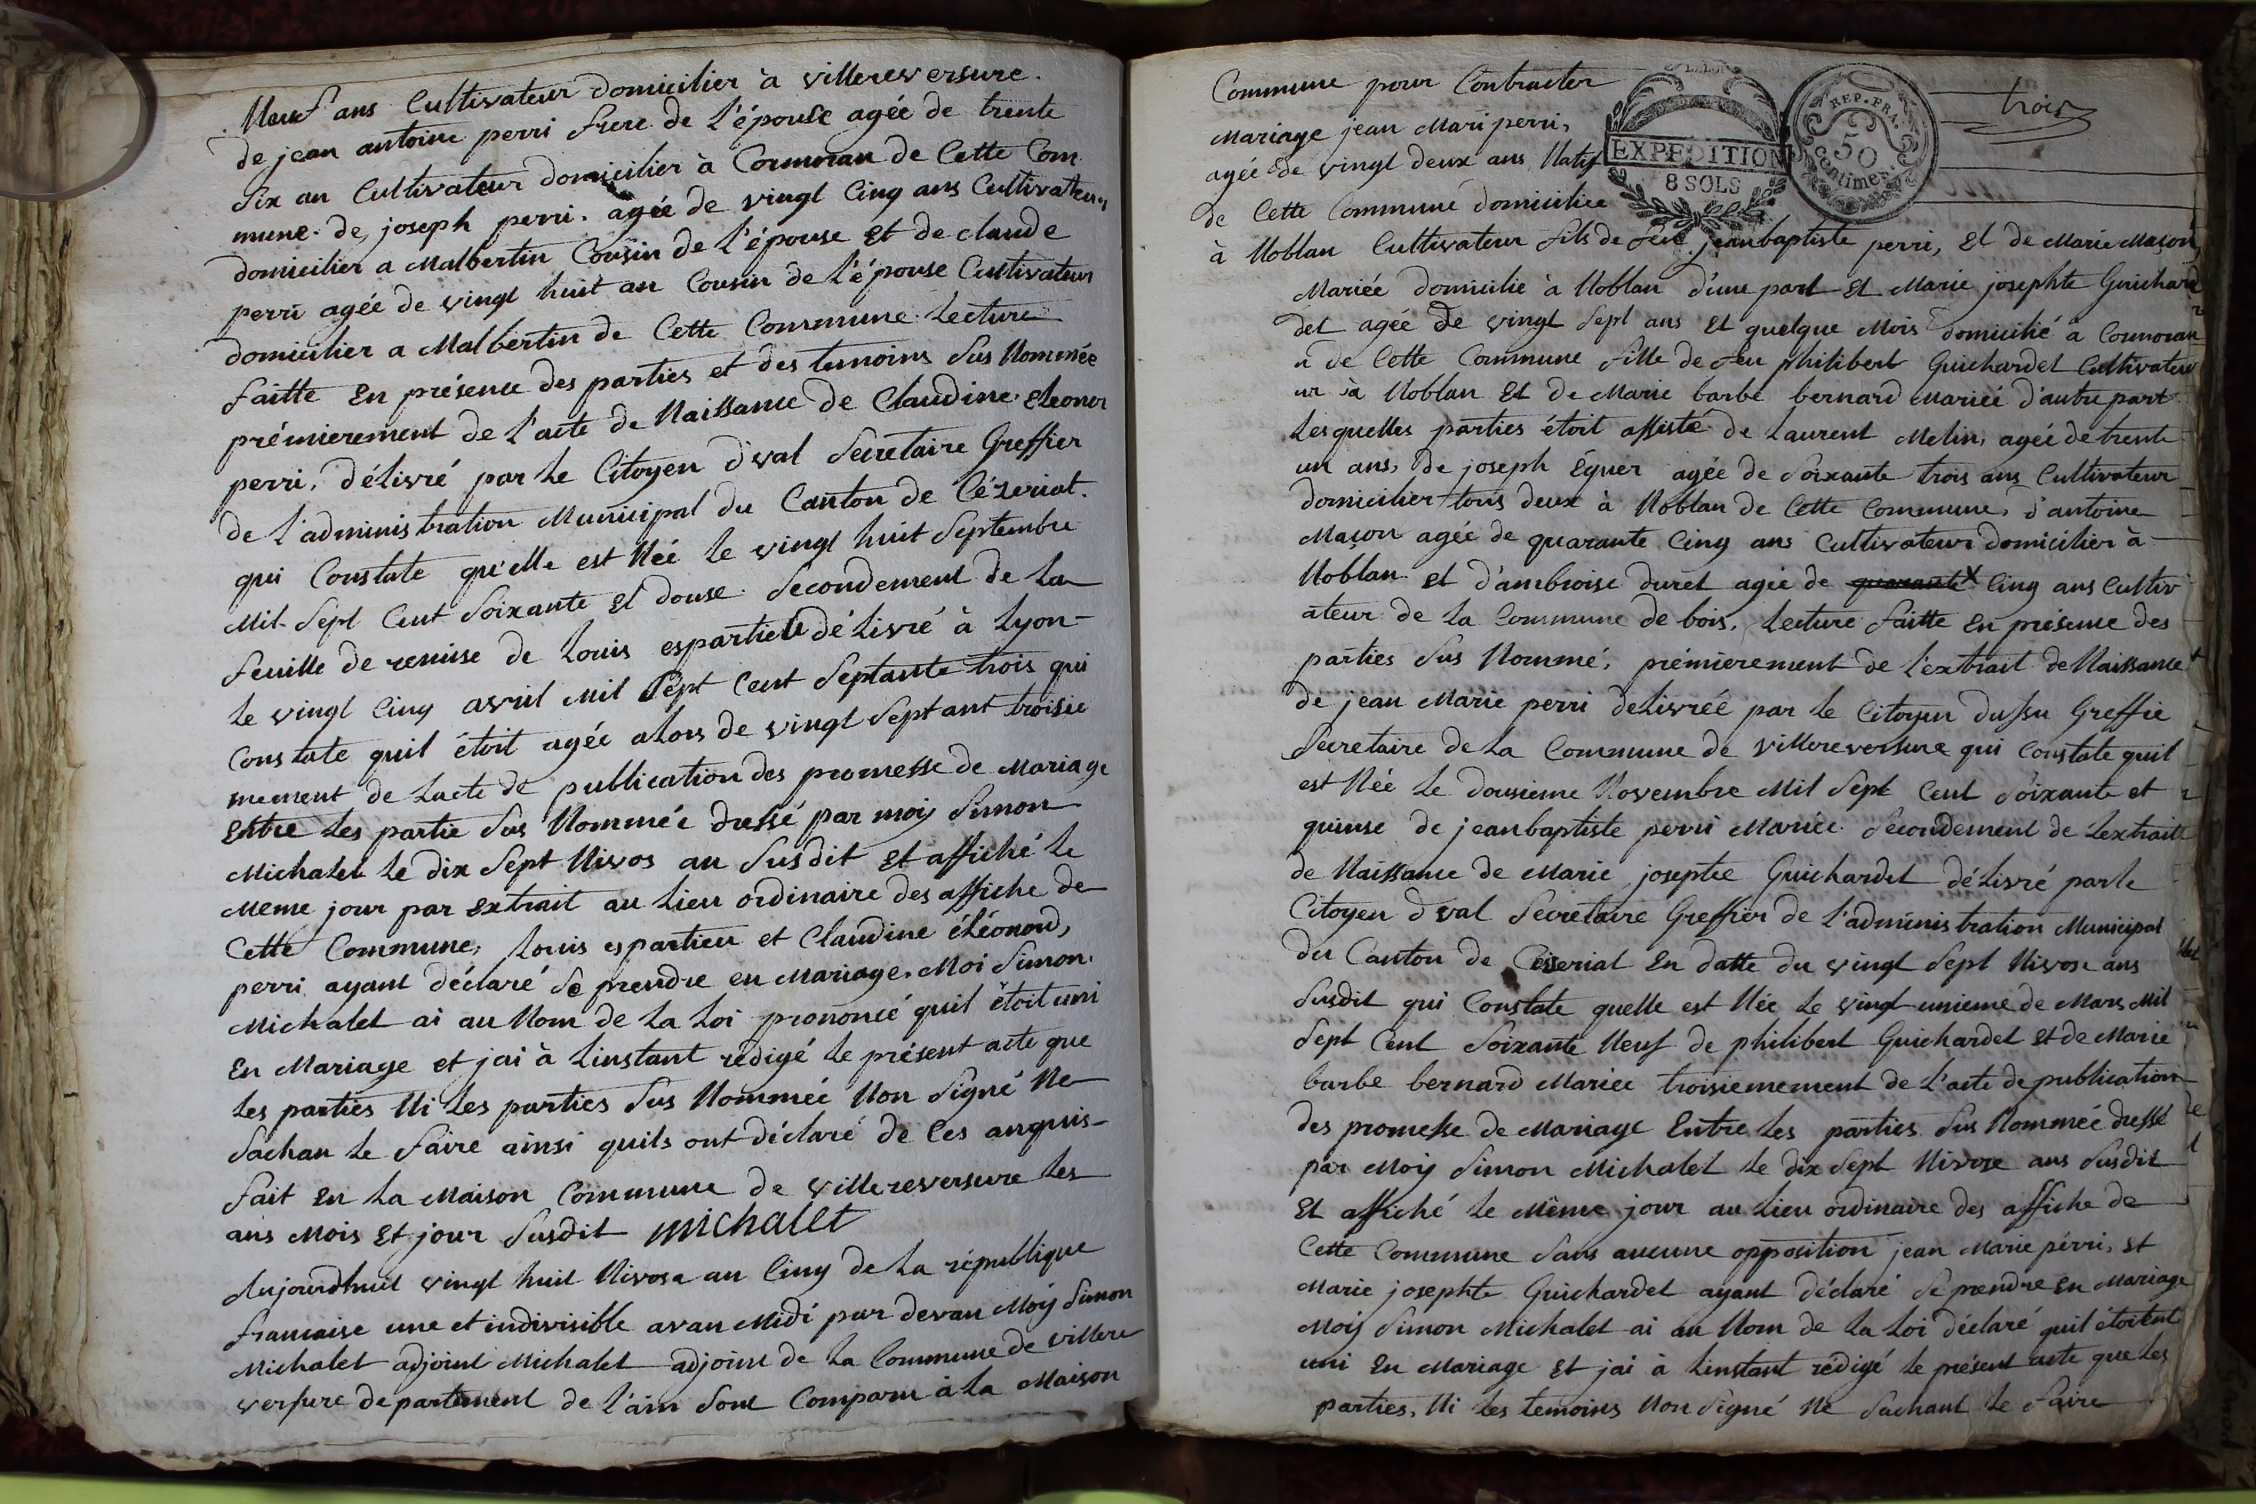 Neuf ans Cultivateur domicilier à villereversure.
de jean antoine perri frere de l'épouse agée de trente
Six an Cultivateur domicilier à Cormoran de Cette Com
mune. de joseph perri. agée de vingt Cinq ans Cultivateur
domicilier a Malbertin Cousin de l'épouse et de claude
perri agée de vingt huit an Cousin de l'épouse Cultivateur
domicilier a Malbertin de Cette Commune. Lecture
faitte En présence des parties et des temoins Sus Nommée
prémierement de l'acte de Naissance de Claudine. Eleonor
perri, délivré par le Citoyen d'val Secretaire Greffier
de l'administration Municipal du Canton de Cézeriat.
qui Constate qu'elle est Née le vingt huit Septembre
Mil Sept Cent Soixante et douse. Secondement de la
feuille de remise de Louis espartieu délivré à Lyon
le vingt Cinq avril Mil Sept Cent Septante trois qui
Constate quil étoit agée alors de vingt Sept ant troisie
mement de lacte de publication des promesse de Mariage
Entre les partie Sus Nommée dressé par moij Simon
Michalet le dix Sept Nivos an Susdit Et affiché le
Meme jour par Extrait au lieu ordinaire des affiche de
Cette Commune, Louis espartieu et Claudine éléonord,
perri ayant déclaré Se prendre en Mariage. Moi Simon.
Michalet ai au Nom de la Loi prononcé quil étoit uni
En Mariage et jai à linstant rédigé le présent acte que
les parties Ni les parties Sus Nommée Non Signé Ne
Sachan le faire ainsi quils ont déclaré de Ces anquis-
fait En la Maison Commune de villereversure les
ans Mois Et jour Susdit Michalet
Aujourdhuit vingt huit Nivose an Cinq de la république
francaise une et indivisible avan Midi par devan Moij Simon
Michalet adjoint Michalet adjoint de la Commune de villere
versure departement de l'ain Sont Comparu à la Maison
trois
EXPEDITION
8 SOLS
REP. FRA.
50
Centimes
Commune pour Contracter
Mariage jean Mari perri,
agée de vingt deux ans Natif
de Cette Commune domiciliee
à Noblan Cultivateur fils de feu jeanbaptiste perri, Et de Marie Maçon
Mariée domicilié à Noblan d'une part Et Marie josephte Guichard
det agée de vingt Sept ans Et quelque Mois domicilié à Cormoran
de Cette Commune fille de feu philibert Guichardet Cultivateu
ur à Noblan Et de Marie barbe bernard Mariée d'autre part
Lesquelles parties étoit assisté de Laurent Melin, agée de trente
un ans, de joseph Eguer agée de Soixante trois ans Cultivateur
domicilier tous deux à Noblan de Cette Commune, d'antoine
Maçon agée de quarante Cinq ans Cultivateur domicilier à
Noblan. Et d'ambroise duret agée de quarante Cinq ans Cultiv
ateur de la Commune de bois, Lecture faitte En présence des
parties Sus Nommé, prémierement de l'extrait de Naissance
de jean Marie perri délivréé par le Citoyen dussu Greffie
Secretaire de la Commune de villereversure qui Constate quil
est Née le dousieme Novembre Mil Sept Cent Soixante et
quinse de jeanbaptiste perri Mariée. Secondement de lextrait
de Naissance de Marie josepte Guichardet délivré par le
Citoyen d'val Secretaire Greffier de l'administration Municipal
du Canton de Ceserial En datte du vingt Sept Nivose ans
Susdit qui Constate quelle est Née le vingt-unieme de Mars Mil
Sept Cent Soixante Neuf de philibert Guichardet Et de Marie
barbe bernard Mariee troisiemement de l'acte de publication
des promesse de Mariage Entre les parties Sus Nommée dressé
par Moij Simon Michalet le dix Sept Nivose ans Susdit
Et affiché le Même jour au lieu ordinaire des affiche de
Cette Commune Sans aucune opposition jean Marie pérri, Et
Marie josephte Guichardet ayant déclaré Se prendre En Mariage
Moij Simon Michalet ai au Nom de la Loi déclaré quil étoitent
uni En Mariage Et jai à linstant rédigé le présent acte que les
parties, Ni les temoins Non Signé Ne Sachant le faire